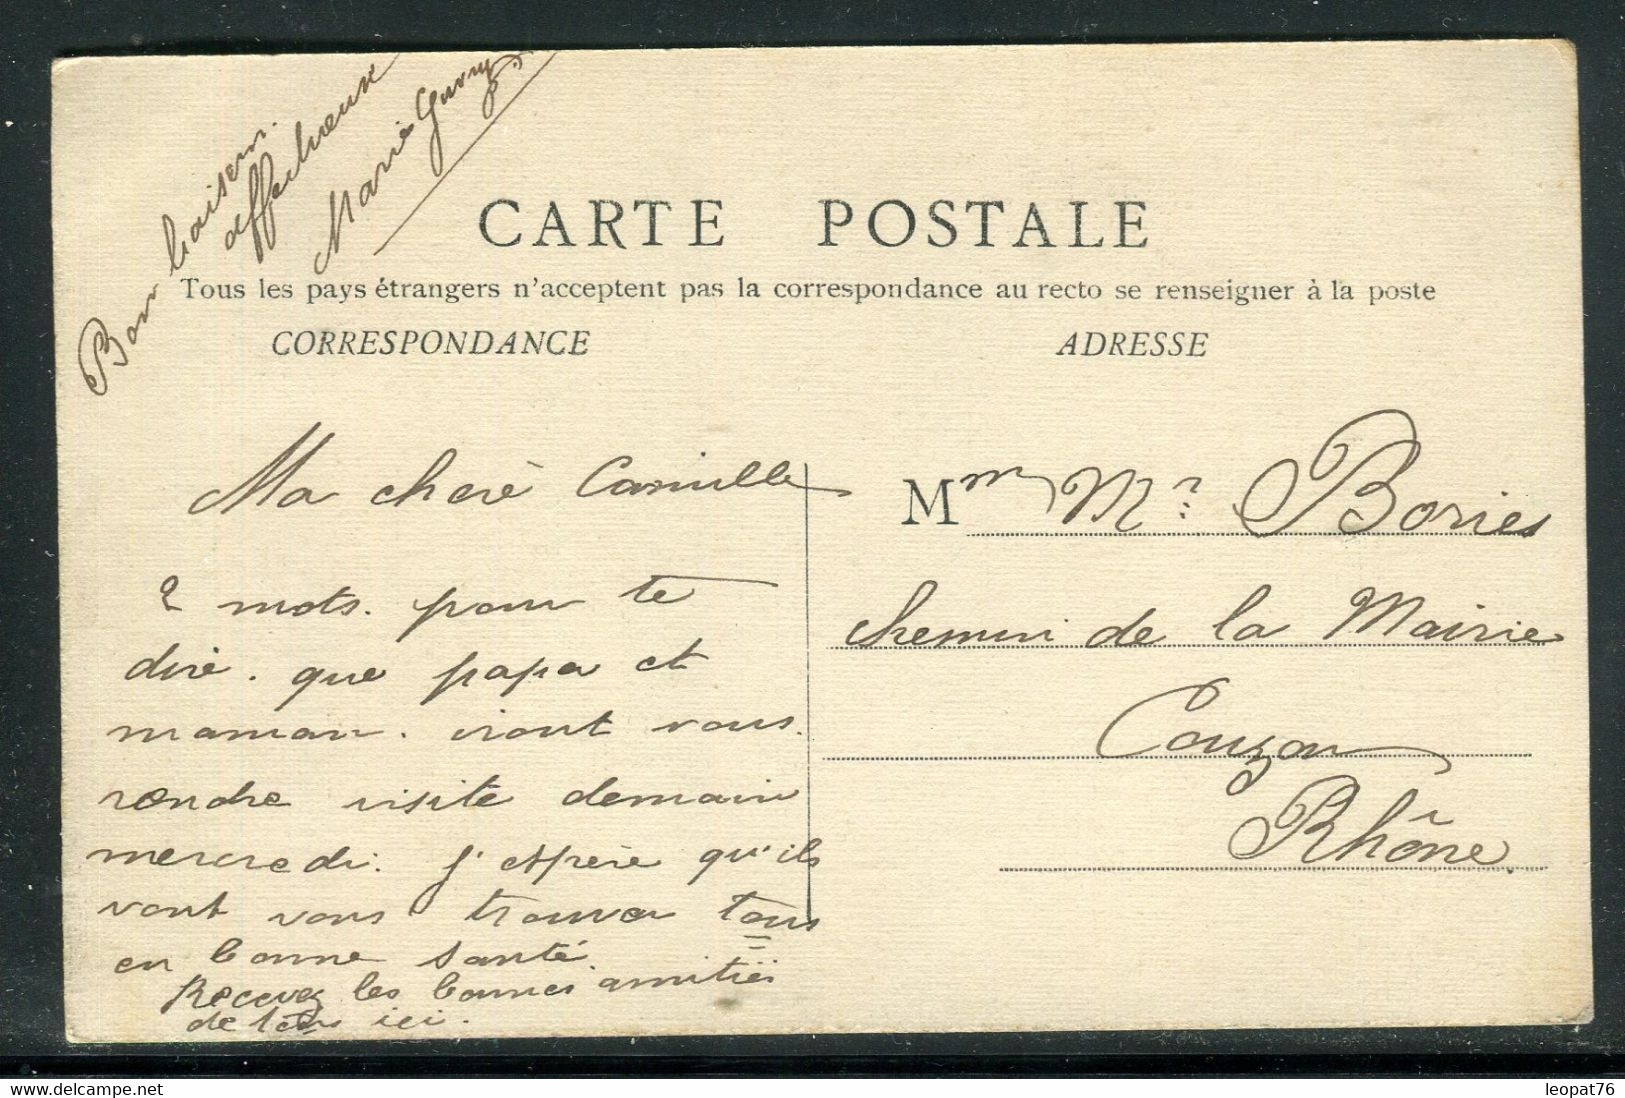 Bon baiser.
affectueux
Marie
CARTE POSTALE
Tous les pays étrangers n'acceptent pas la correspondance au recto se renseigner à la poste
CORRESPONDANCE
ADRESSE
Ma chere Camille
2 mots. pour te
dire. que papa et
maman. iront vous.
rendre visite demain
mercredi. J'espere qu'ils
vont vous trouver tous
en bonne santé.
Recevez les bonnes amitiés
de tous ici.
Mme Mr: Bories
chemin de la Mairie
Couzon
Rhône.
www.delcampe.net
leopat76